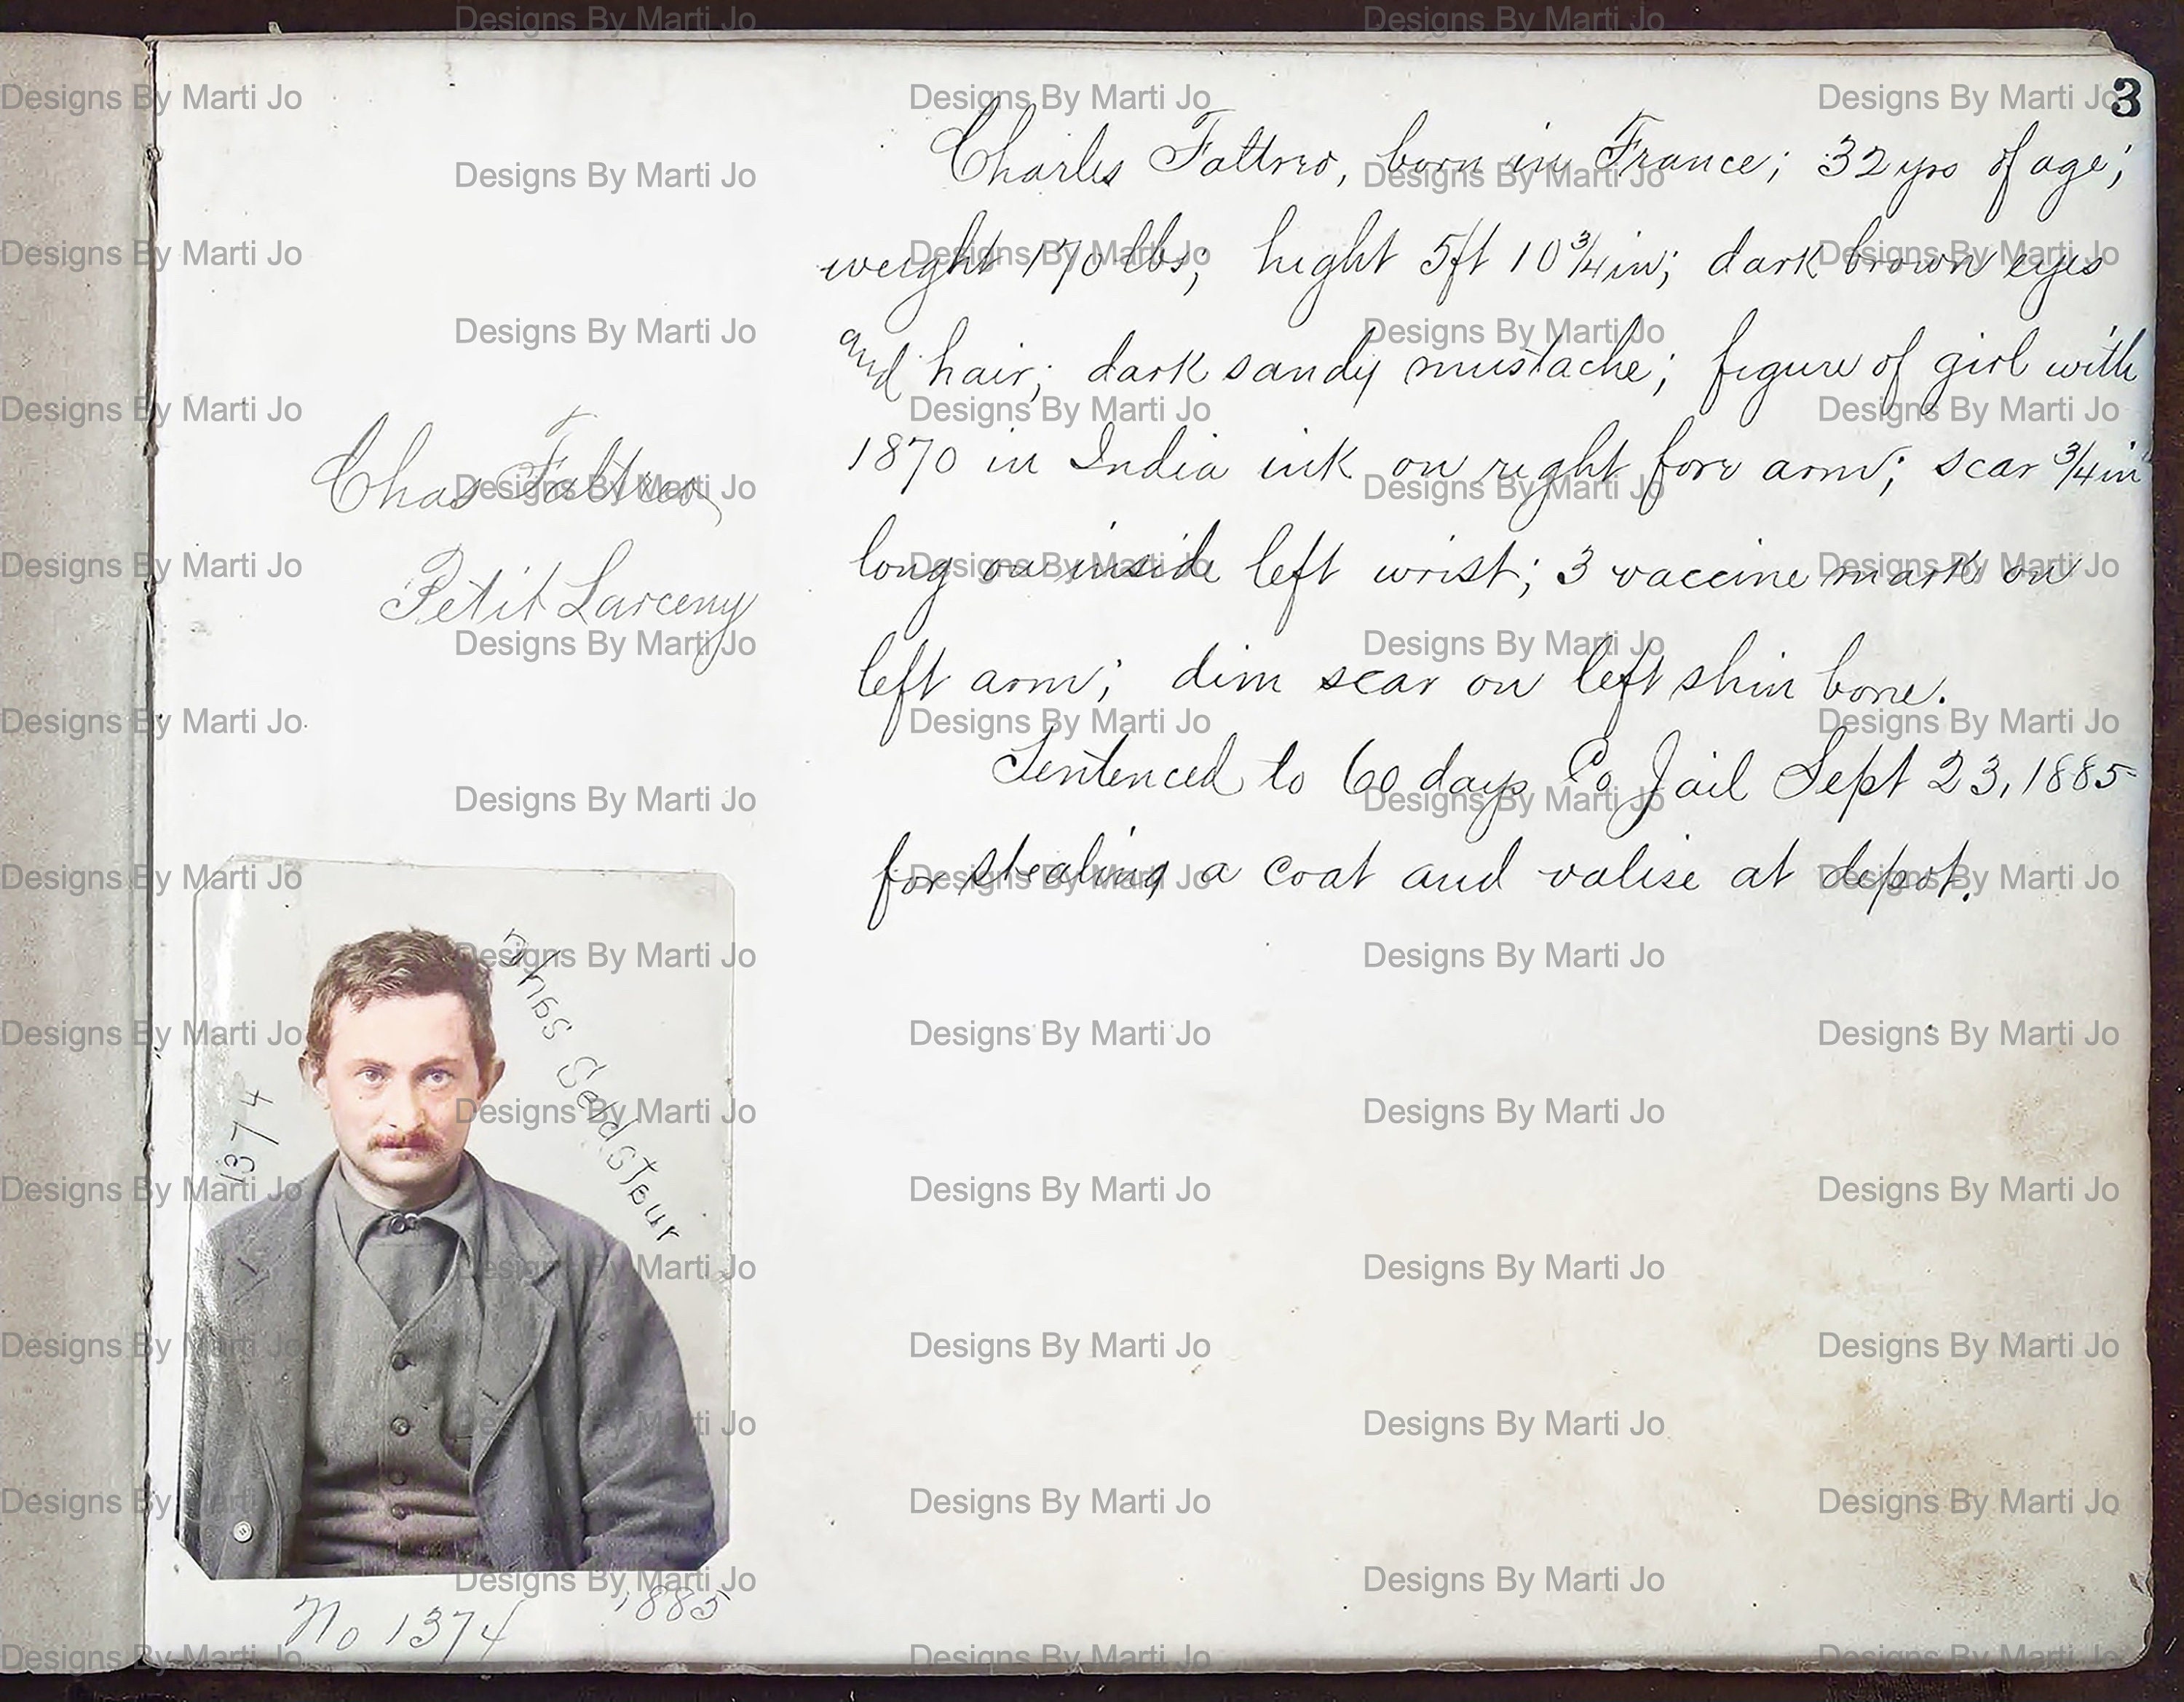 3
Charles Faltreo, born in France; 32 yrs of age;
weight 170 lbs; hight 5ft 10 3/4 in; dark brown eyes
and hair; dark sandy mustache; figure of girl with
1870 in India ink on right fore arm; scar 3/4 in
long on inside left wrist; 3 vaccine mark on
left arm; dim scar on left shin bone.
Sentenced to 60 days Co Jail Sept 23, 1885
for stealing a coat and valise at depot.
Chas Faltreo
Petit Larceny
Chas
1374
No 1374 1885
Designs By Marti Jo